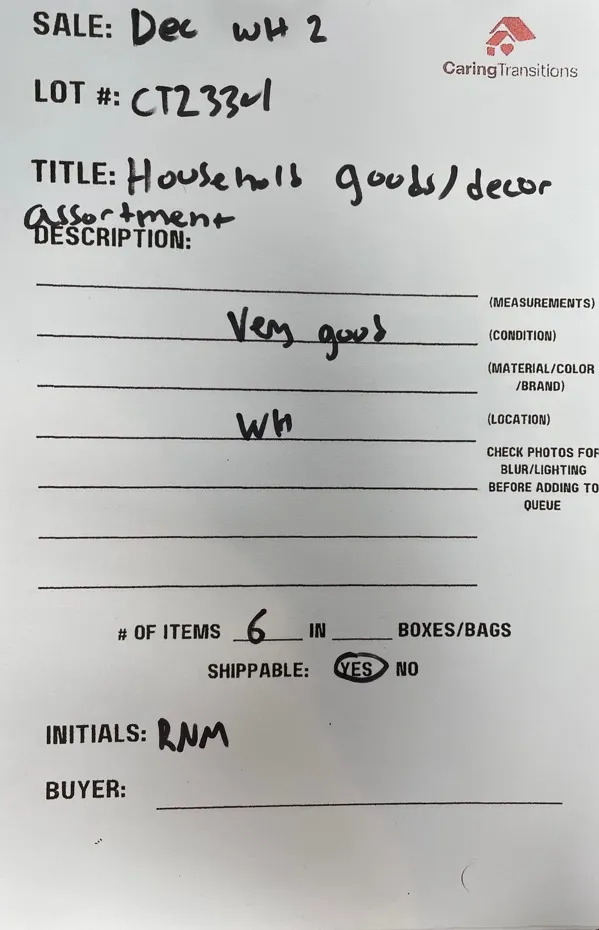 SALE: Dec WH 2
CaringTransitions
LOT #:
TITLE: Household goods/decor
assortment
DESCRIPTION:
(MEASUREMENTS)
Very good (CONDITION)
(MATERIAL/COLOR
/BRAND)
WH (LOCATION)
CHECK PHOTOS FOR
BLUR/LIGHTING
BEFORE ADDING TO
QUEUE
# OF ITEMS 6 IN BOXES/BAGS
SHIPPABLE: YES NO
INITIALS: RNM
BUYER: